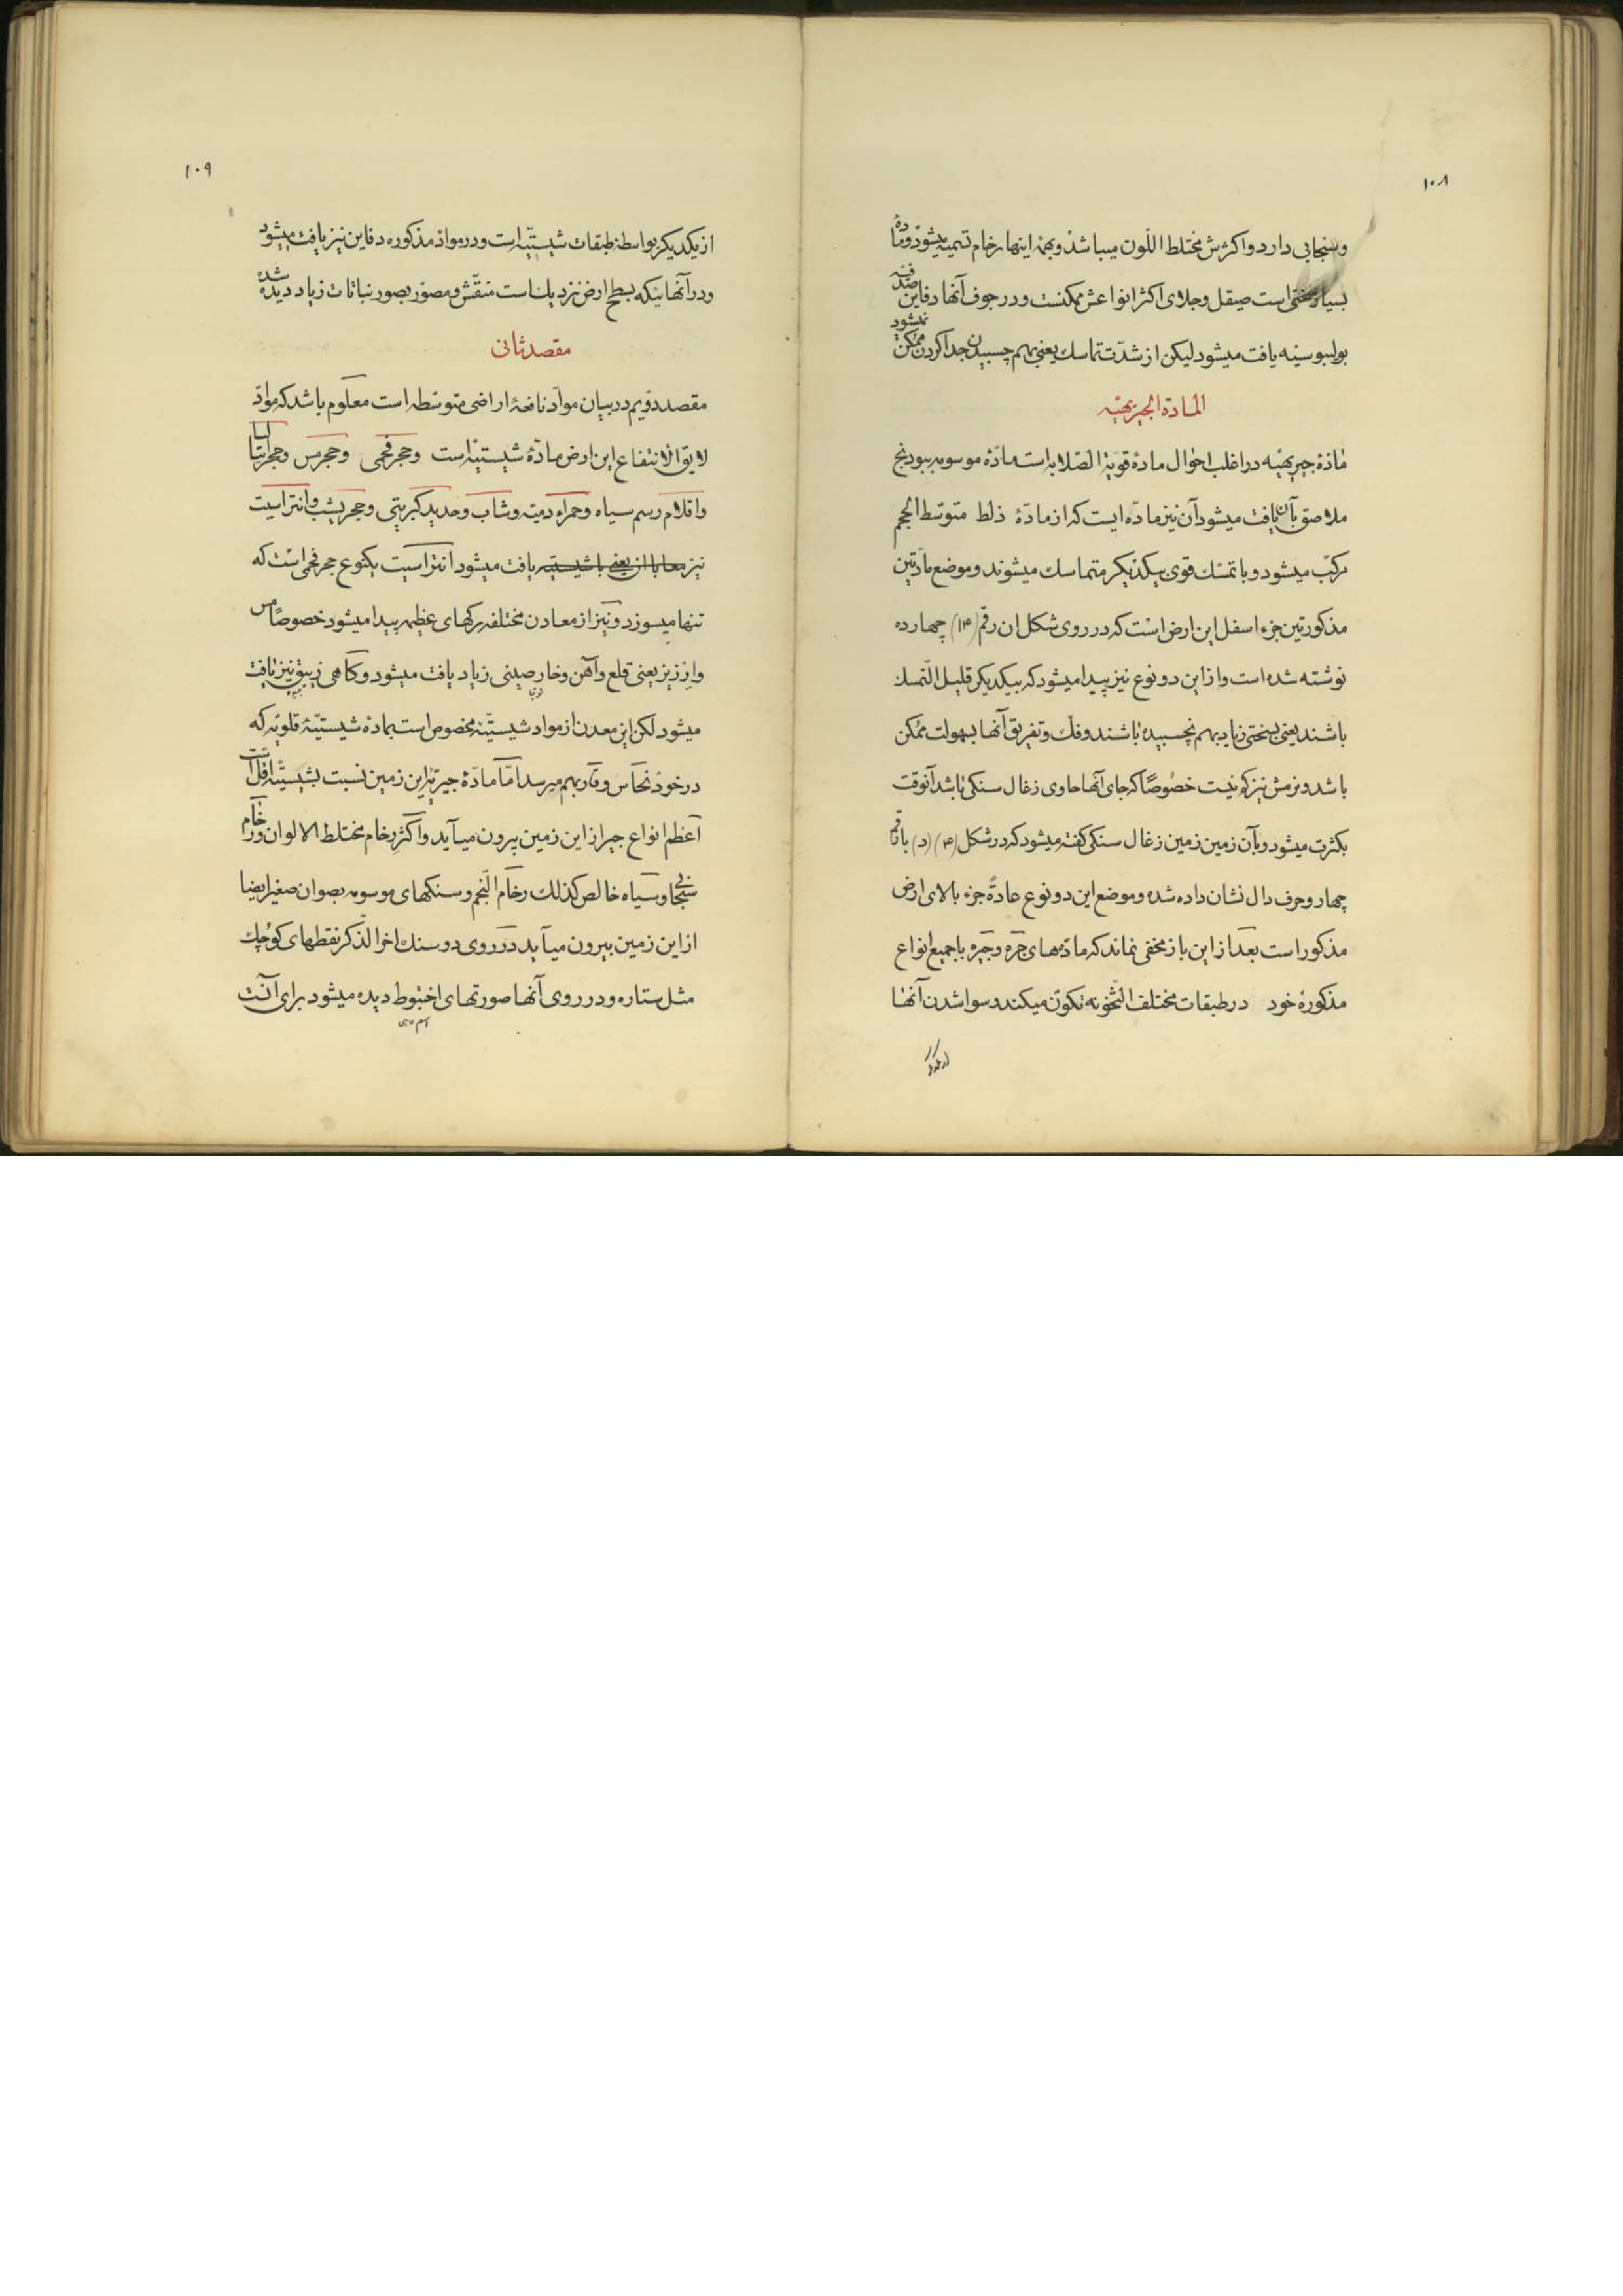 ۱۰۸
و سنجابی دارد و اکثرش مختلط اللون میباشد و بهمهٔ اینها رخام تسمیه میشود و مادهٔ
بسیار سختی است صیقل و جلای اکثر انواعش ممکنست و در جوف آنها دفاین صدفیه
بولیبوسیّه یافت میشود لیکن از شدّت تماسك یعنی بهم چسبیدن جدا کردن ممکن نمیشود
المادة الجیریهیّه
مادّهٔ جیریهیّه در اغلب احوال مادهٔ قویة الصّلابه است مادّهٔ موسومه ببودنج
ملاصق بآن یافت میشود آن نیز مادّه ایست که از مادّهٔ ذلط متوسّط الحجم
مرکّب میشود و با تمسّك قوی بیکدیکر متماسك میشوند و موضع مادّتین
مذکورتین جزء اسفل این ارض است که در روی شکل ان رقم (۱۴) چهارده
نوشته شده است و از این دو نوع نیز پیدا میشود که بیکدیکر قلیل التّمسك
باشند یعنی بسختی زیاد بهم نچسبیده باشند و فك و تفریق آنها بسهولت ممکن
باشد و نرمش نیز که نیست خصوصًا که جای آنها حاوی زغال سنکی باشد آنوقت
بکثرت میشود و بآن زمین زمین زغال سنکی کفته میشود که در شکل (۴) (د) با رقم
چهار و حرف دال نشان داده شده و موضع این دو نوع عادةً جزء بالای ارض
مذکور است بعد از این باز مخفی نماند که مادّمهای جَرَه و جَیَره با جمیع انواع
مذکورهٔ خود در طبقات مختلف الثّخونه تکوّن میکند و سوا شدن آنها
از یکدیکر
۱۰۹
از یکدیکر بواسطهٔ طبقات شیستیّه است و در مواد مذکوره دفاین نیز یافت میشود
و در آنهائیکه بسطح ارض نزدیك است منقّش و مصوّر بصور نباتات زیاد دیده شده
مقصد ثانی
مقصد دوّیم در بیان موادّ نافعهٔ اراضی متوسّطه است معلوم باشد که موادّ
لایق الانتفاع این ارض مادّهٔ شیستیّه است و حجر فحمی و حجر مس و حجر
و اقلام رسم سیاه و حمراء دمیّه و شاب و حدید کبریتی و حجر یشب و انتراسیت
نیز یافت میشود انتراسیت یکنوع حجر فحمی است که
تنها میسوزد و نیز از معادن مختلفه رکهای عظیمه پیدا میشود خصوصًا مس
و ارزیز یعنی قلع و آهن و خارصینی زیاد یافت میشود و کاهی زیبق نیز یافت
میشود لکن این معدن از مواد شیستیّه مخصوص است بمادهٔ شیستیّهٔ قلویّه که
در خود نحاس و قار بهم میرسد امّا مادّهٔ جیریّهٔ این زمین نسبت بشیستیّه اقلّ است
اعظم انواع جیر از این زمین بیرون میآید و اکثر رخام مختلط الالوان و رخام
سنجابی و سیاه خالص کذلك رخام النّجم و سنکهای موسومه بصوان صغیر ایضا
از این زمین بیرون میآید در روی دو سنك اخر الذّکر نقطهای کوچك
مثل ستاره و در روی آنها صورتهای اخبوط دیده میشود برای آنست
اسم ماهی